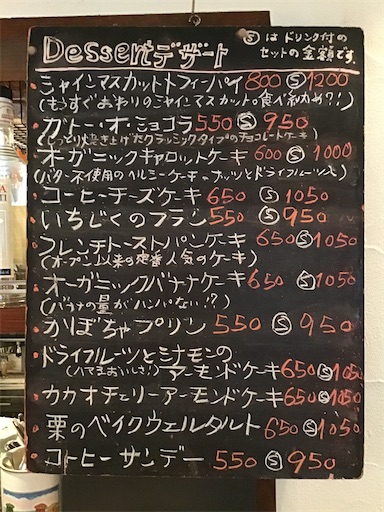 Dessert デザート
Ⓢ は ドリンク付の
セットの金額です。
シャインマスカットトフィーパイ 800 Ⓢ 1200
(もうすぐおわりのシャインマスカットの食べ納め?!)
ガトー・オ・ショコラ 550 Ⓢ 950
(しっとり焼き上げたクラシックタイプのチョコレートケーキ)
オーガニックキャロットケーキ 600 Ⓢ 1000
(バター不使用のヘルシーケーキ。ナッツとドライフルーツ入)
コーヒーチーズケーキ 650 Ⓢ 1050
いちじくのフラン 550 Ⓢ 950
フレンチトーストパンケーキ 650 Ⓢ 1050
(オープン以来の定番人気のケーキ)
オーガニックバナナケーキ 650 Ⓢ 1050
(バナナの量がハンパない!?)
かぼちゃプリン 550 Ⓢ 950
ドライフルーツとシナモンの
(ハマるおいしさ!) アーモンドケーキ 650 Ⓢ 1050
カカオチェリーアーモンドケーキ 650 Ⓢ 1050
栗のベイクウェルタルト 650 Ⓢ 1050
コーヒーサンデー 550 Ⓢ 950